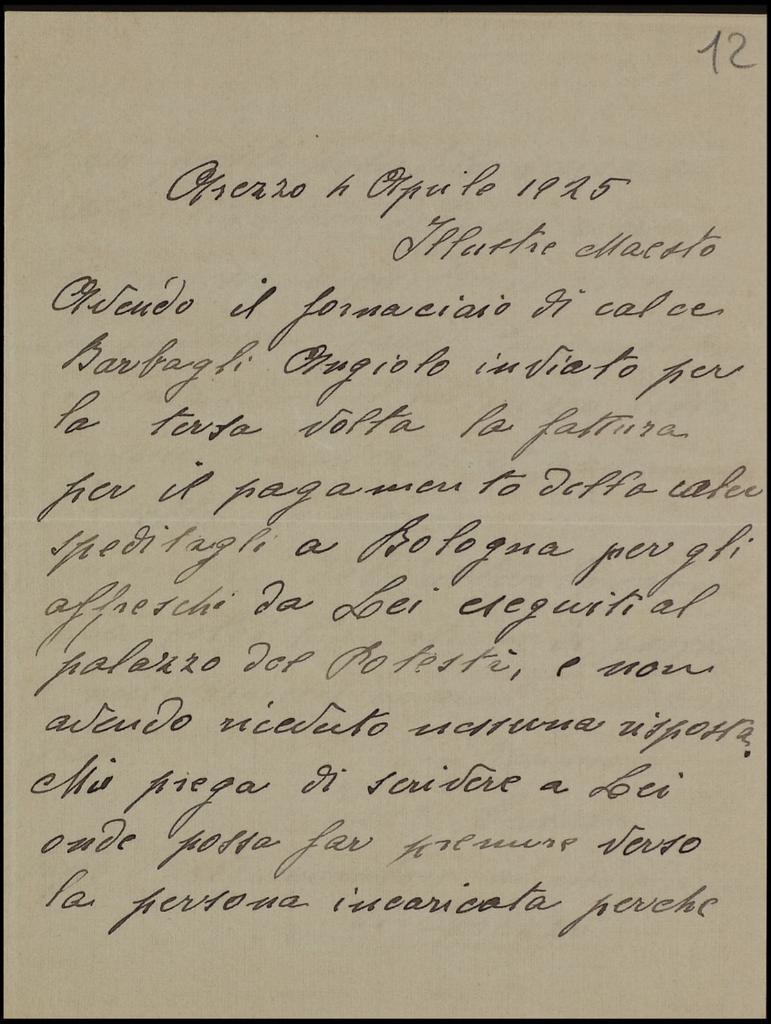 12
Arezzo 4 Aprile 1925
Illustre Maesto
Avendo il fornaciaio di calce
Barbagli Angiolo inviato per
la tersa volta la fattura
per il pagamento della calce
speditagli a Bologna per gli
affreschi da Lei eseguiti al
palazzo del Potestà, e non
avendo ricevuto nessuna risposta.
Mi prega di scrivere a Lei
onde possa far premure verso
la persona incaricata perche